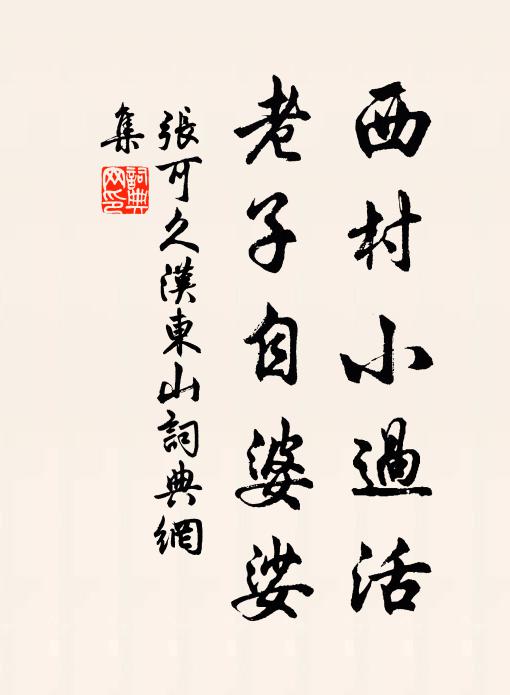 西村小過活
老子自婆娑
張可久漢東山詞典網
集
詞典
网印